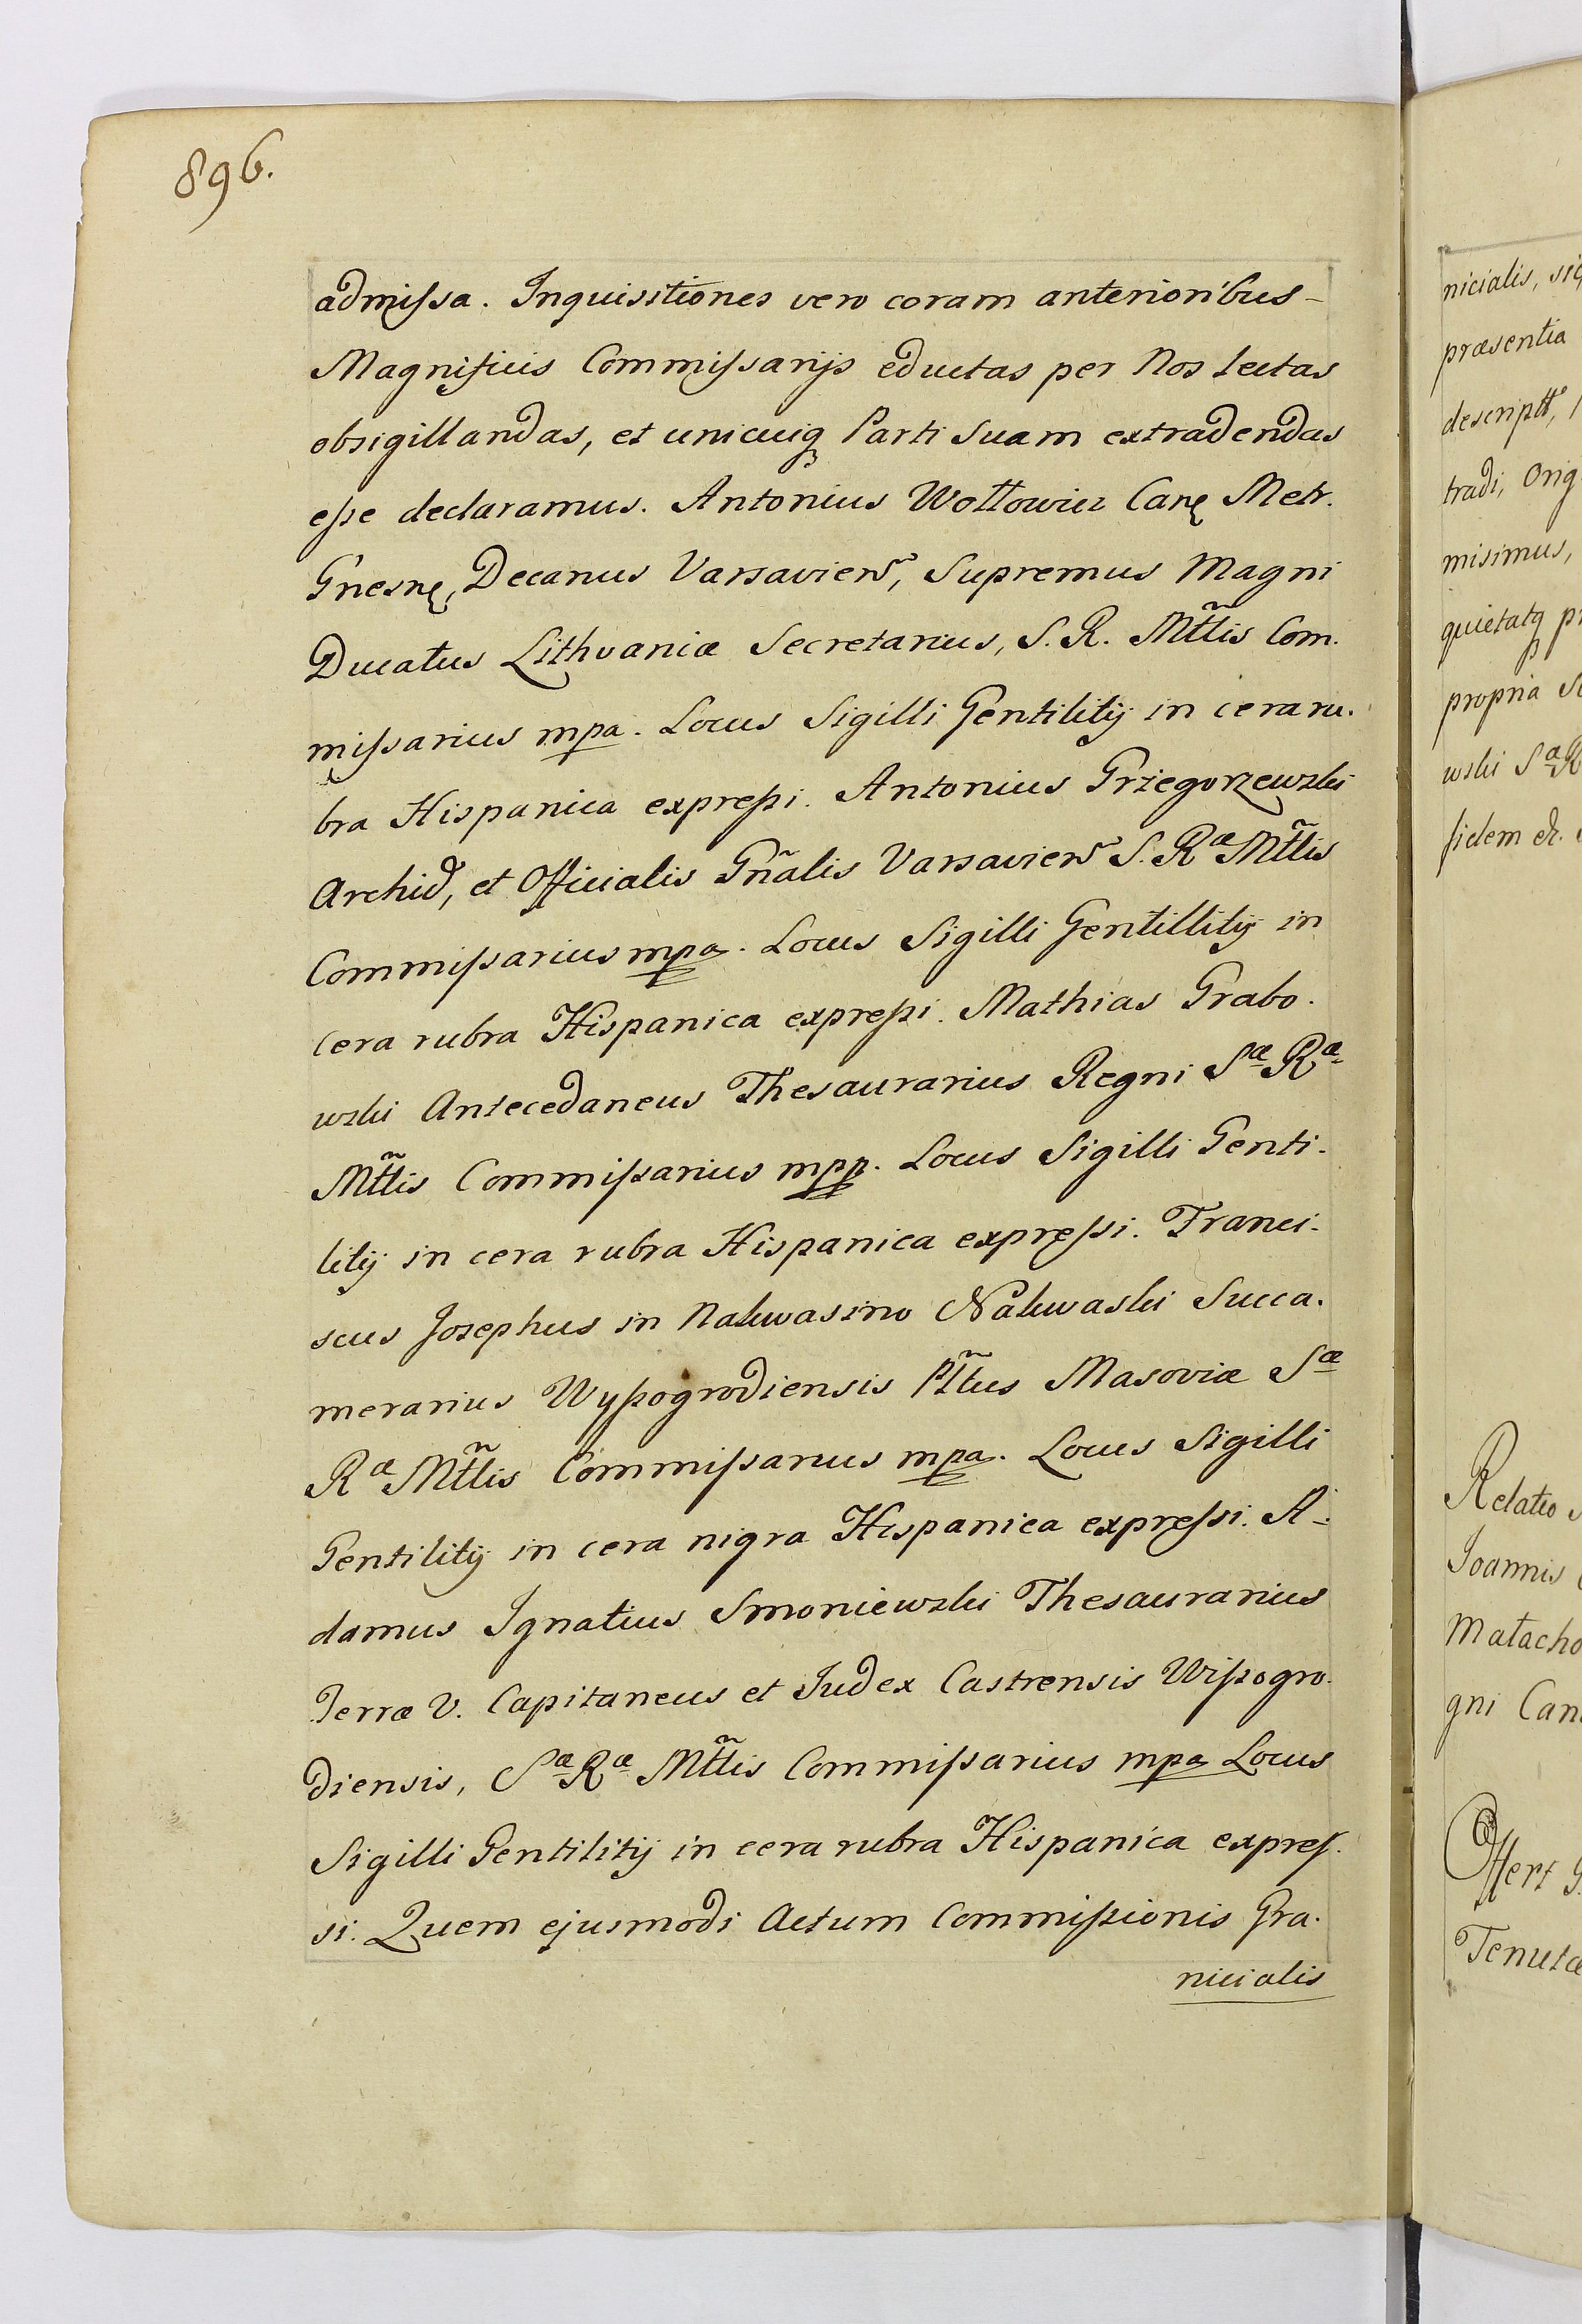 896.
admissa. Inquisitiones vero coram anterioribus-
Magnificis Commissarijs eductas per Nos lectas
obsigillandas, et unicuiq Parti suam extradendas
esse declaramus. Antonius Wołłowicz Canę Metr.
Gnesnę, Decanus Varsavien, Supremus Magni
Ducatus Lithvaniæ Secretarius, S. R. Mttis Com.
missarius mpa. Locus Sigilli Gentilitij in cera ru.
bra Hispanica expressi. Antonius Grzegorzewski
Archid, et Officialis Gñalis Varsavien S. Ræ Mttis
Commissarius mpa. Locus Sigilli Gentillitij in
cera rubra Hispanica expressi. Mathias Grabo.
wski Antecedaneus Thesaurarius Regni Sæ Ræ
Mttis Commissarius mpp. Locus Sigilli Genti.
litij in cera rubra Hispanica expressi. Franci.
scus Josephus in Nakwasino Nakwaski Succa.
merarius Wyszogrodiensis Płtus Masoviæ Sæ
Ræ Mttis Commissarius mpa. Locus Sigilli
Gentilitij in cera nigra Hispanica expressi. A-
damus Ignatius Smoniewski Thesaurarius
Terræ V. Capitaneus et Judex Castrensis Wiszogro.
diensis, Sæ Ræ Mttis Commissarius mpa Locus
Sigilli Gentilitij in cera rubra Hispanica expres.
si. Quem ejusmodi Actum Commissionis Gra.
nicialis
nicialis, sig
præsentia
descriptt,
tradi, Orig
misimus,
quietatq pr
propria
wski Sæ R
fidem
Relatio
Joannis
Małacho
gni Can
Offert
Tenutæ